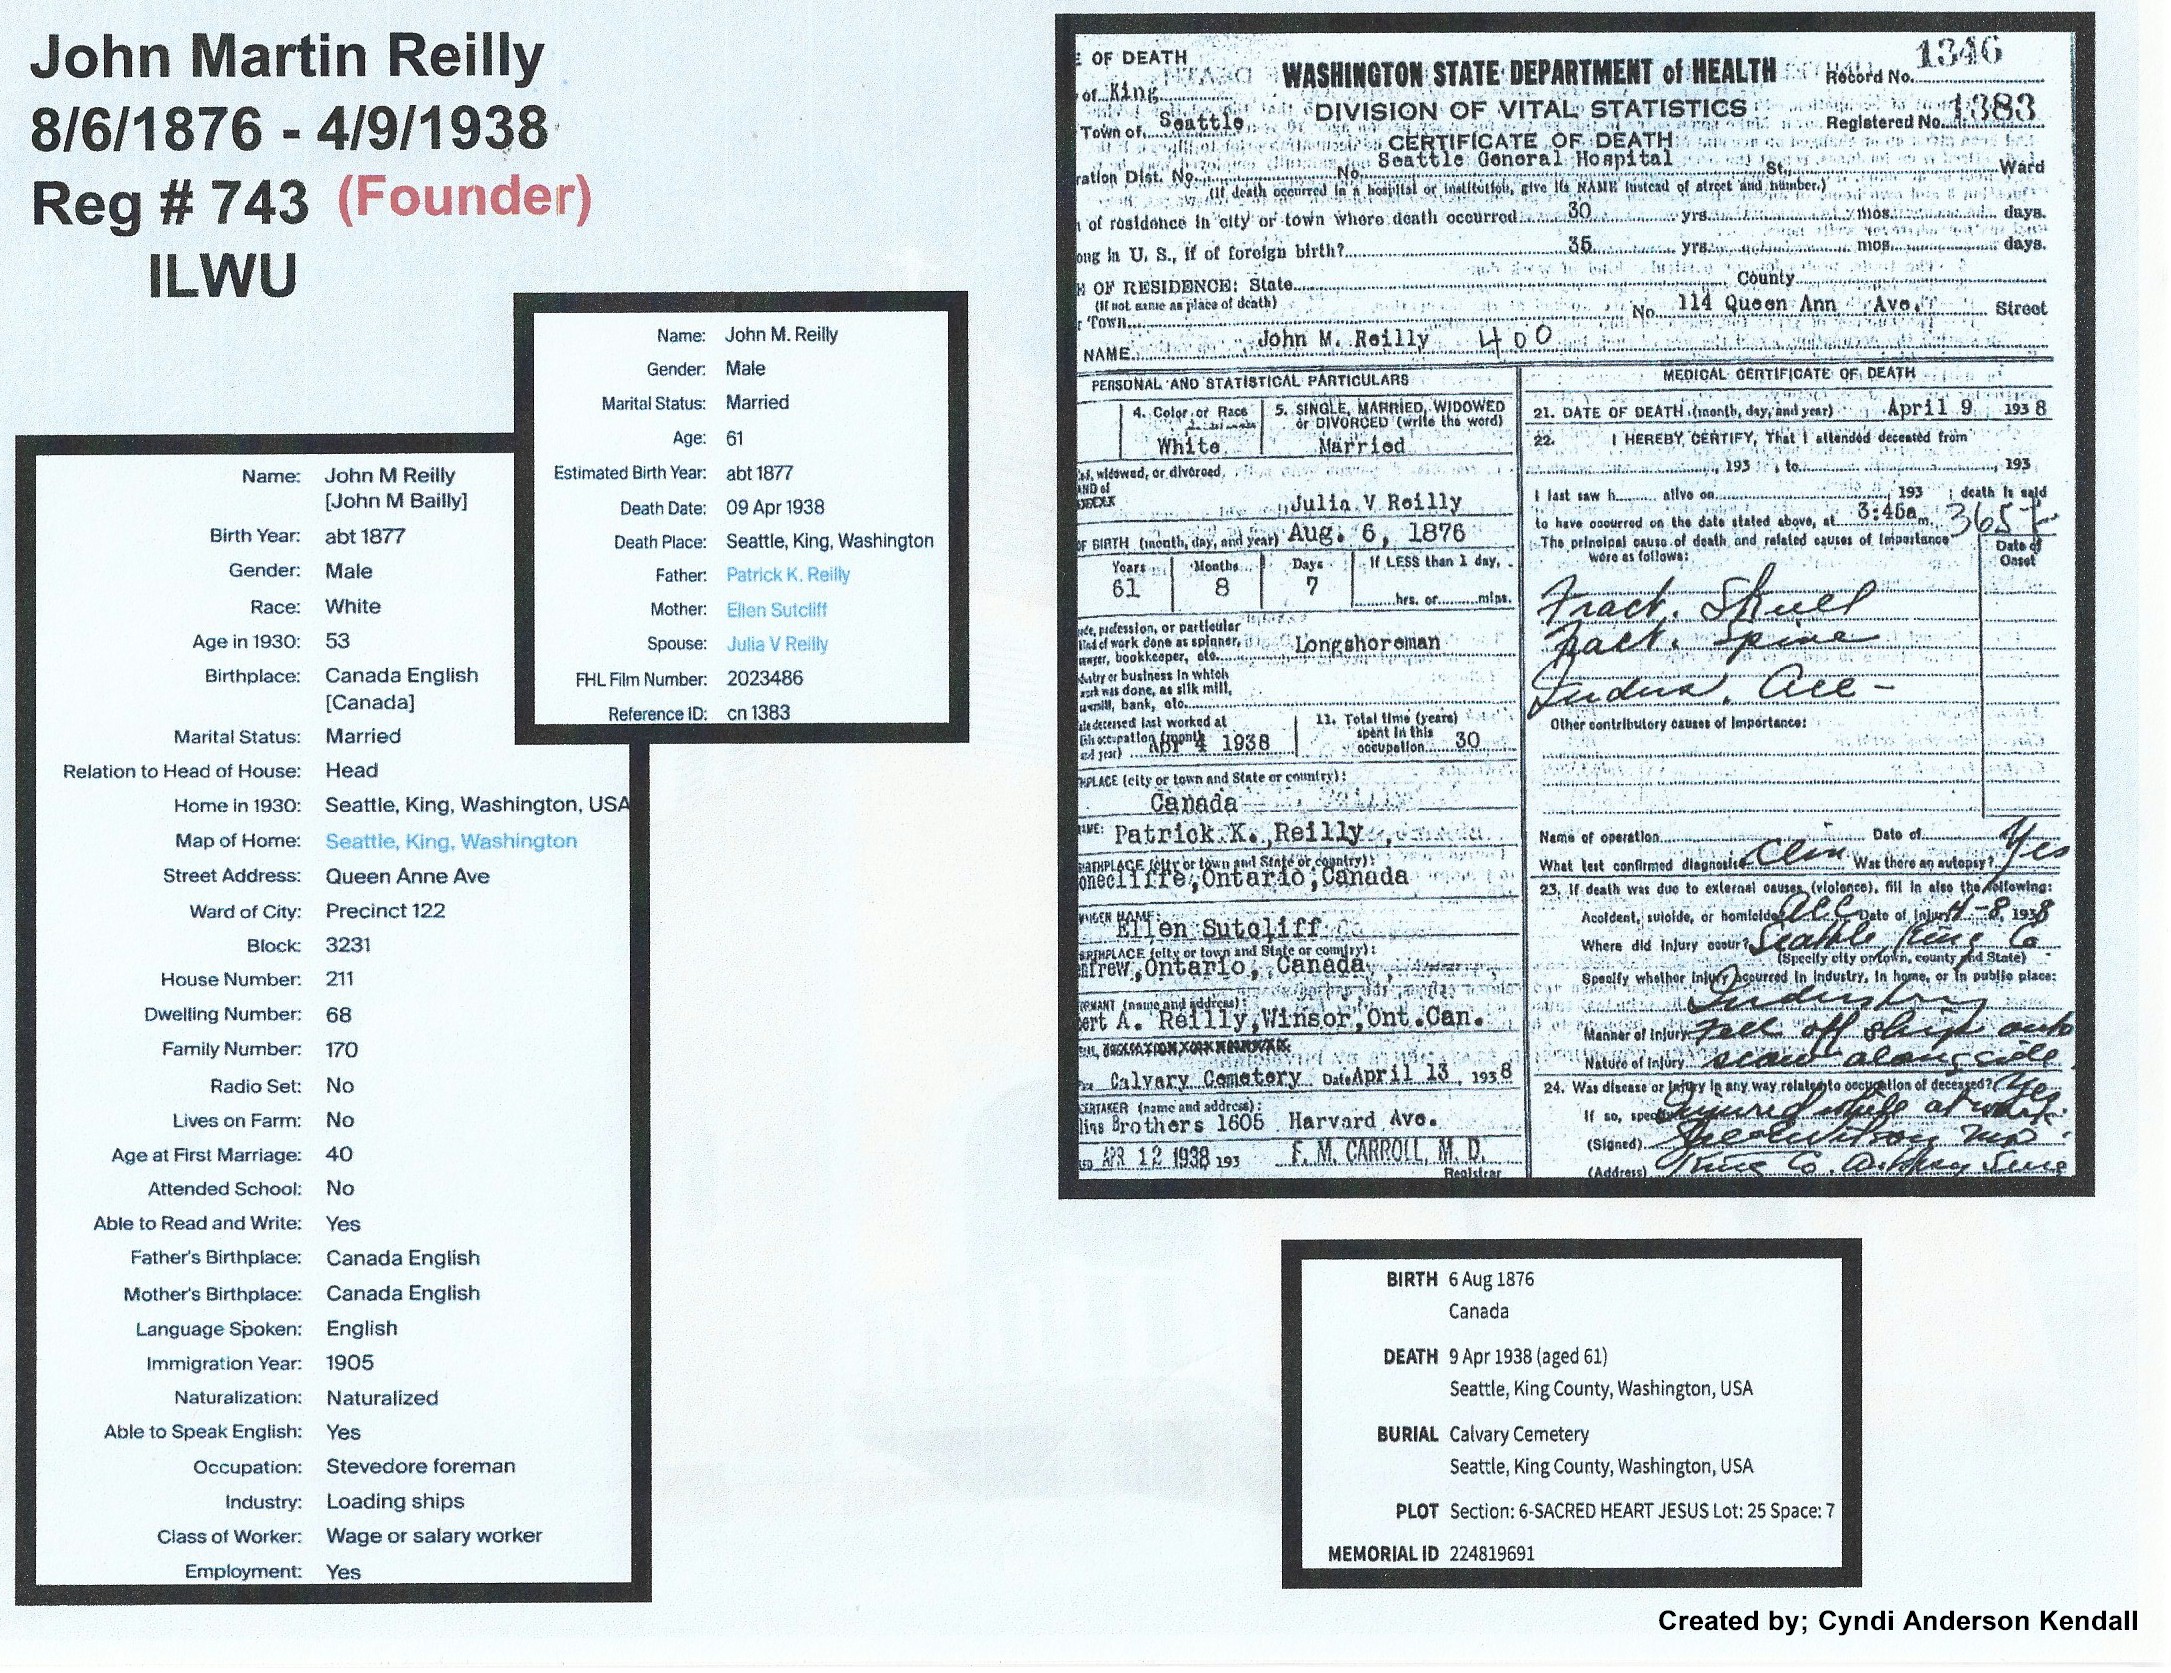 John Martin Reilly
8/6/1876 - 4/9/1938
Reg # 743 (Founder)
ILWU
Name: John M. Reilly
Gender: Male
Marital Status: Married
Age: 61
Estimated Birth Year: abt 1877
Death Date: 09 Apr 1938
Death Place: Seattle, King, Washington
Father: Patrick K. Reilly
Mother: Ellen Sutcliff
Spouse: Julia V Reilly
FHL Film Number: 2023486
Reference ID: cn 1383
Name: John M Reilly
[John M Bailly]
Birth Year: abt 1877
Gender: Male
Race: White
Age in 1930: 53
Birthplace: Canada English
[Canada]
Marital Status: Married
Relation to Head of House: Head
Home in 1930: Seattle, King, Washington, USA
Map of Home: Seattle, King, Washington
Street Address: Queen Anne Ave
Ward of City: Precinct 122
Block: 3231
House Number: 211
Dwelling Number: 68
Family Number: 170
Radio Set: No
Lives on Farm: No
Age at First Marriage: 40
Attended School: No
Able to Read and Write: Yes
Father's Birthplace: Canada English
Mother's Birthplace: Canada English
Language Spoken: English
Immigration Year: 1905
Naturalization: Naturalized
Able to Speak English: Yes
Occupation: Stevedore foreman
Industry: Loading ships
Class of Worker: Wage or salary worker
Employment: Yes
E OF DEATH
WASHINGTON STATE DEPARTMENT of HEALTH
Record No. 1346
of King
DIVISION OF VITAL STATISTICS
Registered No. 1383
Town of Seattle
CERTIFICATE OF DEATH
Seattle General Hospital
ration Dist. No. No. St. Ward
(If death occurred in a hospital or institution, give its NAME instead of street and number.)
of residence in city or town where death occurred 30 yrs. mos. days.
ong in U. S., if of foreign birth? 35 yrs. mos. days.
E OF RESIDENCE: State County
(If not same as place of death)
Town No. 114 Queen Ann Ave. Street
NAME John M. Reilly 400
PERSONAL AND STATISTICAL PARTICULARS
4. Color or Race
White
5. SINGLE, MARRIED, WIDOWED
or DIVORCED (write the word)
Married
widowed, or divorced
Julia V Reilly
OF BIRTH (month, day, and year) Aug. 6, 1876
Years Months Days If LESS than 1 day,
61 8 7 hrs. or mins.
profession, or particular
kind of work done as spinner, Longshoreman
bookkeeper, etc.
industry or business in which
work was done, as silk mill,
bank, etc.
deceased last worked at
this occupation (month
and year) Apr 4 1938
11. Total time (years)
spent in this
occupation 30
HPLACE (city or town and State or country):
Canada
Patrick K. Reilly
BIRTHPLACE (city or town and State or country):
onecliffe, Ontario, Canada
NAME:
Ellen Sutcliff
BIRTHPLACE (city or town and State or country):
nfrew, Ontario, Canada
ORMANT (name and address):
ert A. Reilly, Winsor, Ont. Can.
Calvary Cemetery Date April 13, 1938
ERTAKER (name and address):
lins Brothers 1605 Harvard Ave.
APR 12 1938 193 F. M. CARROLL, M. D.
Registrar
MEDICAL CERTIFICATE OF DEATH
21. DATE OF DEATH (month, day, and year) April 9 1938
22. I HEREBY CERTIFY, That I attended deceased from
, 193 , to , 193
I last saw h alive on , 193 ; death is said
to have occurred on the date stated above, at 3:45a m.
The principal cause of death and related causes of importance
were as follows:
Date of
Onset
Fract. Skull
Fract. Spine
Indus. Acc-
Other contributory causes of importance:
Name of operation Date of
What test confirmed diagnosis Clin Was there an autopsy? Yes
23. If death was due to external causes (violence), fill in also the following:
Accident, suicide, or homicide Acc Date of injury 4-8, 1938
Where did injury occur? Seattle King Co
(Specify city or town, county and State)
Specify whether injury occurred in industry, in home, or in public place:
Industry
Manner of injury Fell off ship onto
Nature of injury scow alongside
24. Was disease or injury in any way related to occupation of deceased? Yes
If so, specify Injured while at work.
(Signed)
(Address) King Co. Autopsy
BIRTH 6 Aug 1876
Canada
DEATH 9 Apr 1938 (aged 61)
Seattle, King County, Washington, USA
BURIAL Calvary Cemetery
Seattle, King County, Washington, USA
PLOT Section: 6-SACRED HEART JESUS Lot: 25 Space: 7
MEMORIAL ID 224819691
Created by; Cyndi Anderson Kendall